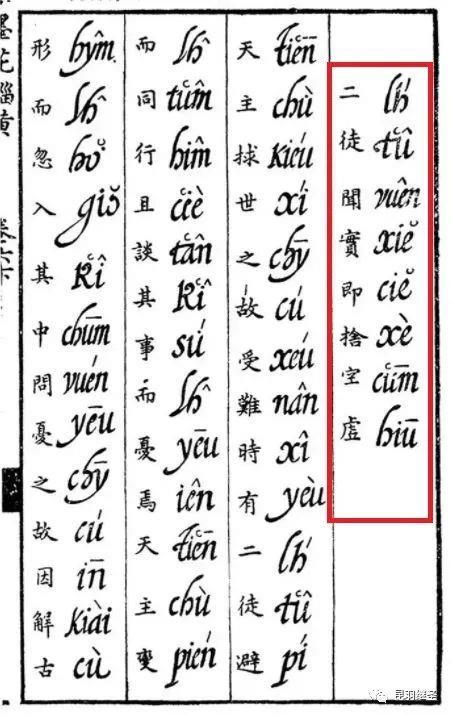 二 lh́ 徒 t῾û 聞 vuên 實 xiĕ 即 ciĕ 捨 xè 空 c῾ūm 虛 hiū
天 t῾iēn 主 chù 捄 kiéu 世 xí 之 chȳ 故 cú 受 xeú 難 nân 時 xî 有 yèu 二 lh́ 徒 t῾û 避 pí
而 lĥ 同 t῾ûm 行 hîm 且 c῾iè 談 t῾ân 其 k῾î 事 sú 而 lĥ 憂 yēu 焉 iên 天 t῾iēn 主 chù 變 pién
形 hŷm 而 lĥ 忽 hŏ 入 giŏ 其 k῾î 中 chūm 問 vuén 憂 yēu 之 chȳ 故 cú 因 īn 解 kiài 古 cù
昆羽继圣